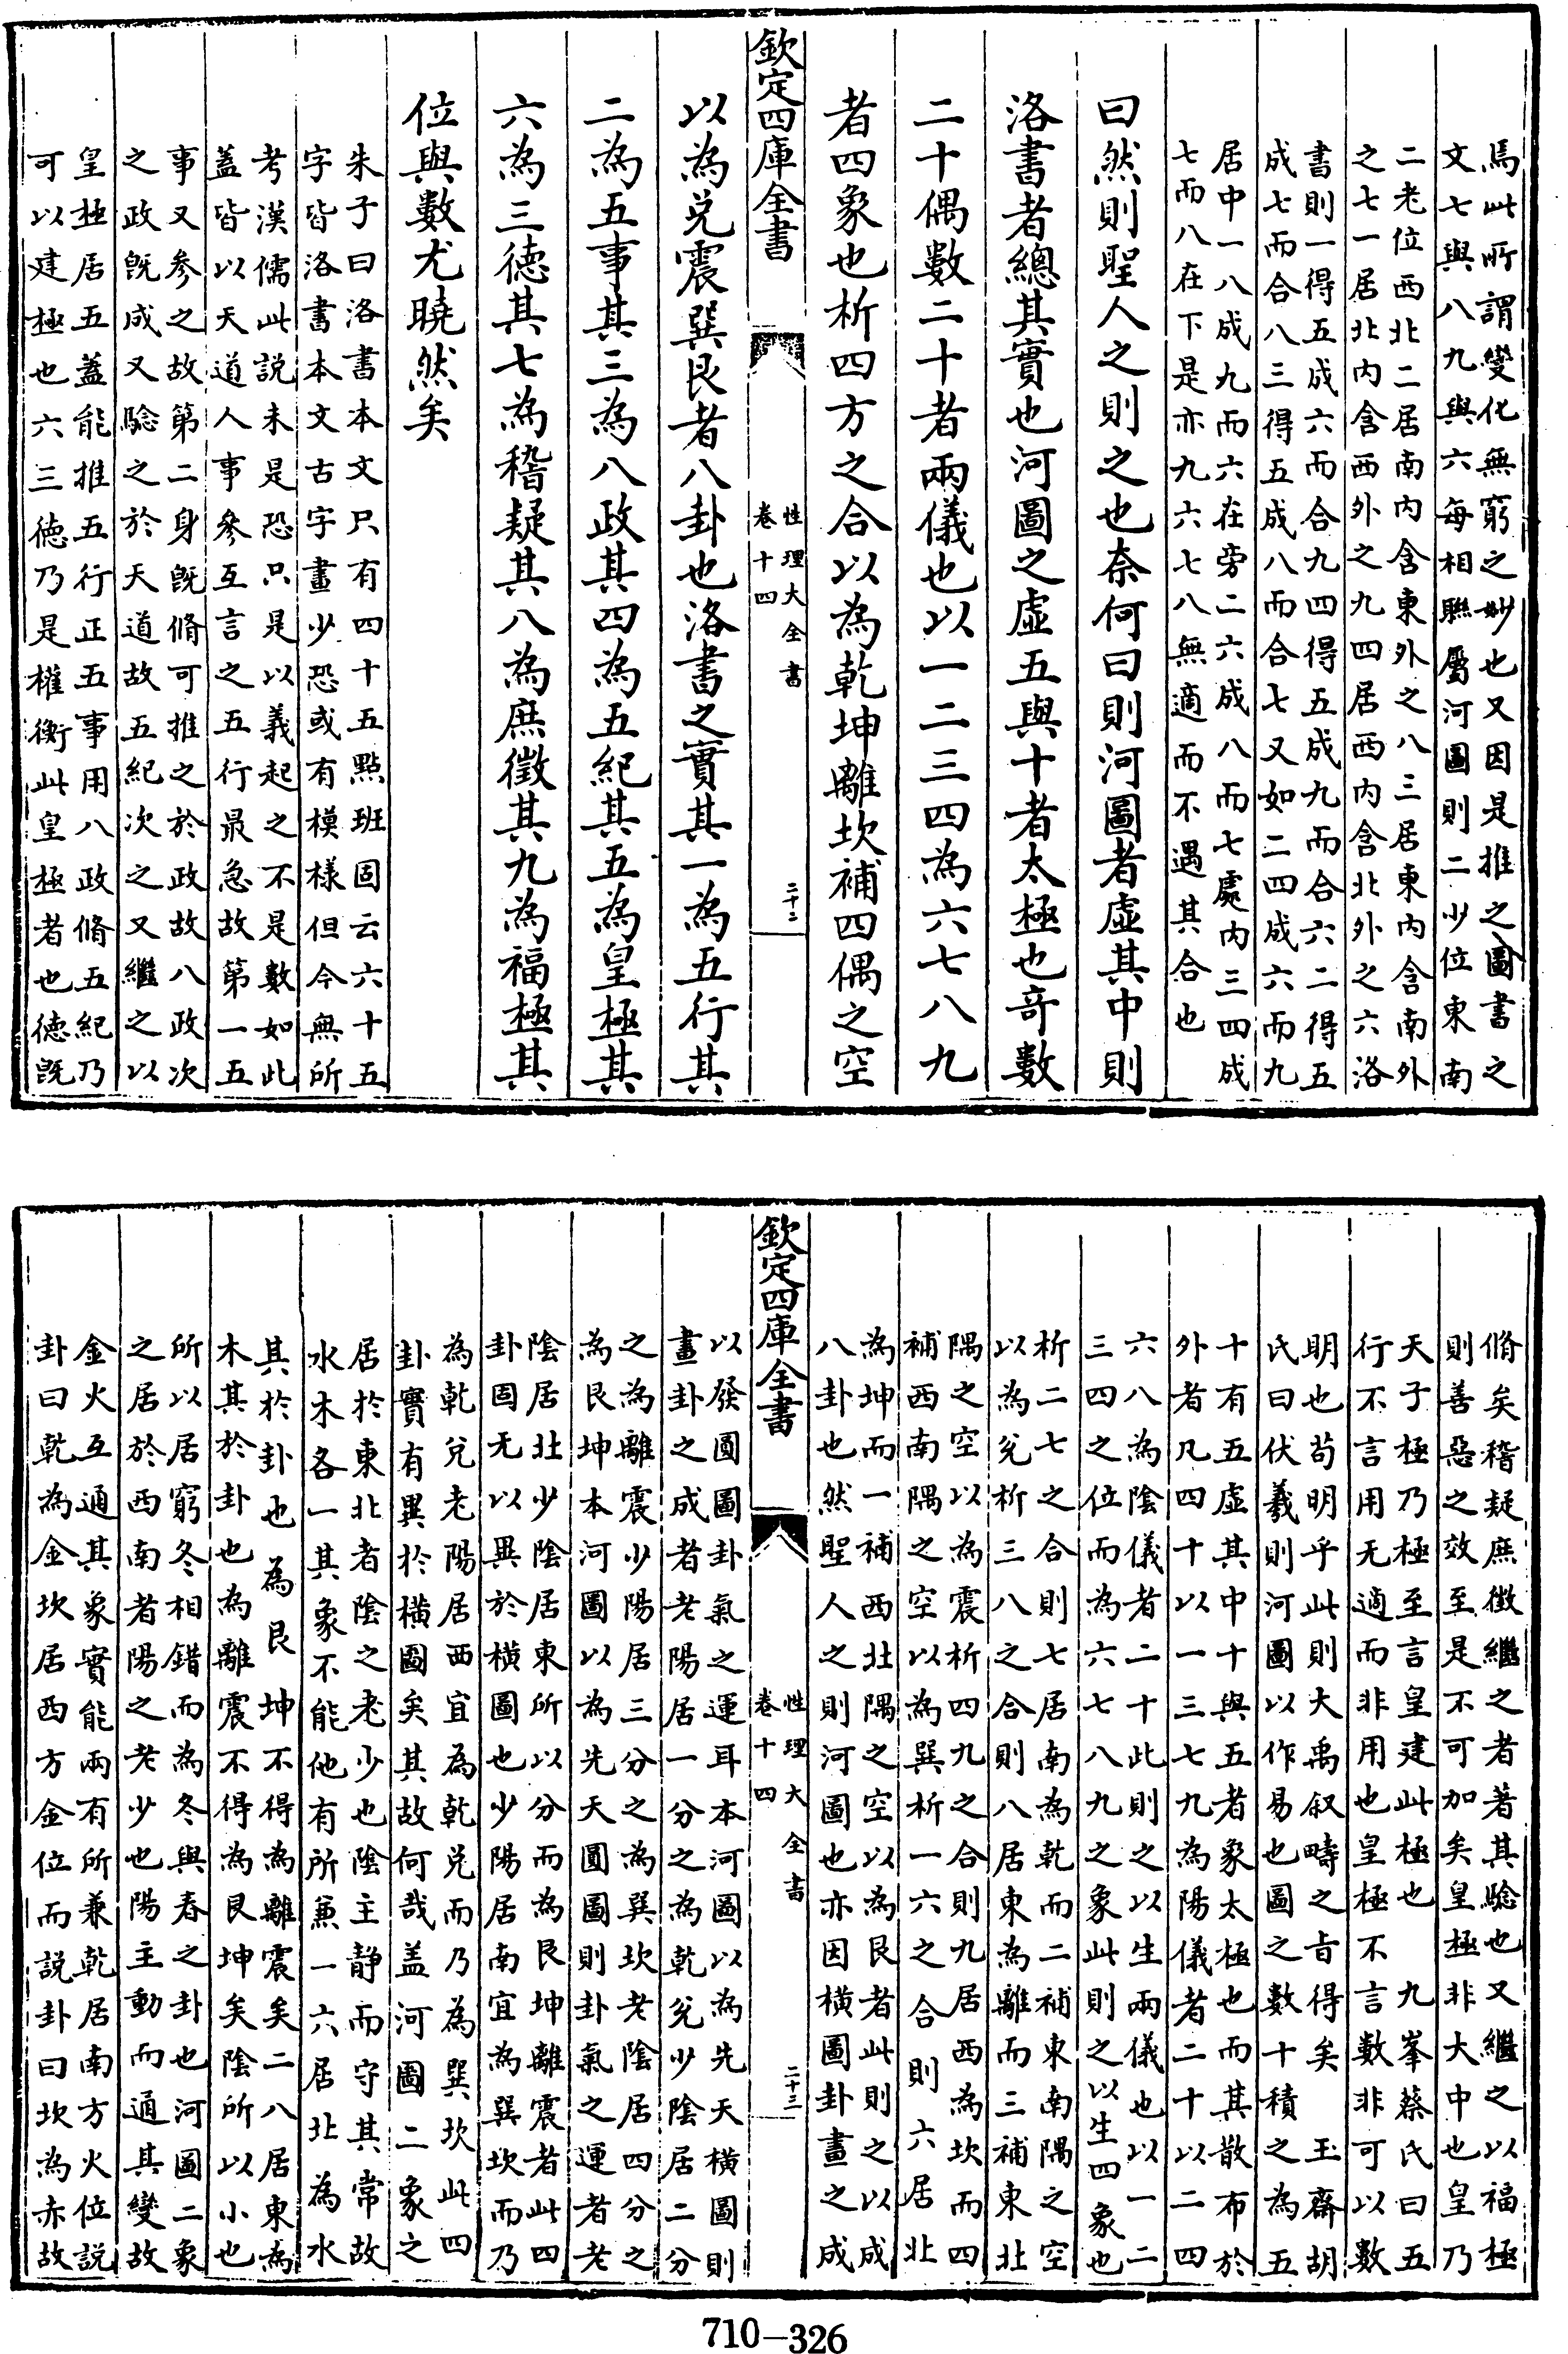 焉此所謂變化無窮之妙也又因是推之圖書之
文七與八九與六每相聯屬河圖則二少位東南
二老位西北二居南內含東外之八三居東內含南外
之七一居北內含西外之九四居西內含北外之六洛
書則一得五成六而合九四得五成九而合六二得五
成七而合八三得五成八而合七又如二四成六而九
居中一八成九而六在旁二六成八而七處內三四成
七而八在下是亦九六七八無適而不遇其合也
曰然則聖人之則之也奈何曰則河圖者虛其中則
洛書者總其實也河圖之虛五與十者太極也奇數
二十偶數二十者兩儀也以一二三四為六七八九
者四象也析四方之合以為乾坤離坎補四偶之空
欽定四庫全書
性理大全書
卷十四
二十二
以為兌震巽艮者八卦也洛書之實其一為五行其
二為五事其三為八政其四為五紀其五為皇極其
六為三德其七為稽疑其八為庶徵其九為福極其
位與數尤曉然矣
朱子曰洛書本文只有四十五點班固云六十五
字皆洛書本文古字畫少恐或有模樣但今無所
考漢儒此説未是恐只是以義起之不是數如此
蓋皆以天道人事參互言之五行最急故第一五
事又參之故第二身既脩可推之於政故八政次
之政既成又驗之於天道故五紀次之又繼之以
皇極居五蓋能推五行正五事用八政脩五紀乃
可以建極也六三德乃是權衡此皇極者也德既
脩矣稽疑庶徵繼之者著其驗也又繼之以福極
則善惡之效至是不可加矣皇極非大中也皇乃
天子極乃極至言皇建此極也　九峯蔡氏曰五
行不言用无適而非用也皇極不言數非可以數
明也苟明乎此則大禹叙疇之旨得矣　玉齋胡
氏曰伏羲則河圖以作易也圖之數十積之為五
十有五虛其中十與五者象太極也而其散布於
外者凡四十以一三七九為陽儀者二十以二四
六八為陰儀者二十此則之以生兩儀也以一二
三四之位而為六七八九之象此則之以生四象也
析二七之合則七居南為乾而二補東南隅之空
以為兌析三八之合則八居東為離而三補東北
隅之空以為震析四九之合則九居西為坎而四
補西南隅之空以為巽析一六之合則六居北
為坤而一補西北隅之空以為艮者此則之以成
八卦也然聖人之則河圖也亦因橫圖卦畫之成
欽定四庫全書
性理大全書
卷十四
二十三
以發圖圖卦氣之運耳本河圖以為先天橫圖則
畫卦之成者老陽居一分之為乾兌少陰居二分
之為離震少陽居三分之為巽坎老陰居四分之
為艮坤本河圖以為先天圓圖則卦氣之運者老
陰居北少陰居東所以分而為艮坤離震者此四
卦固无以異於橫圖也少陽居南宜為巽坎而乃
為乾兌老陽居西宜為乾兌而乃為巽坎此四
卦實有異於橫圖矣其故何哉盖河圖二象之
居於東北者陰之老少也陰主靜而守其常故
水木各一其象不能他有所兼一六居北為水
其於卦也為艮坤不得為離震矣二八居東為
木其於卦也為離震不得為艮坤矣陰所以小也
所以居窮冬相錯而為冬與春之卦也河圖二象
之居於西南者陽之老少也陽主動而通其變故
金火互通其象實能兩有所兼乾居南方火位説
卦曰乾為金坎居西方金位而説卦曰坎為亦故
710-326